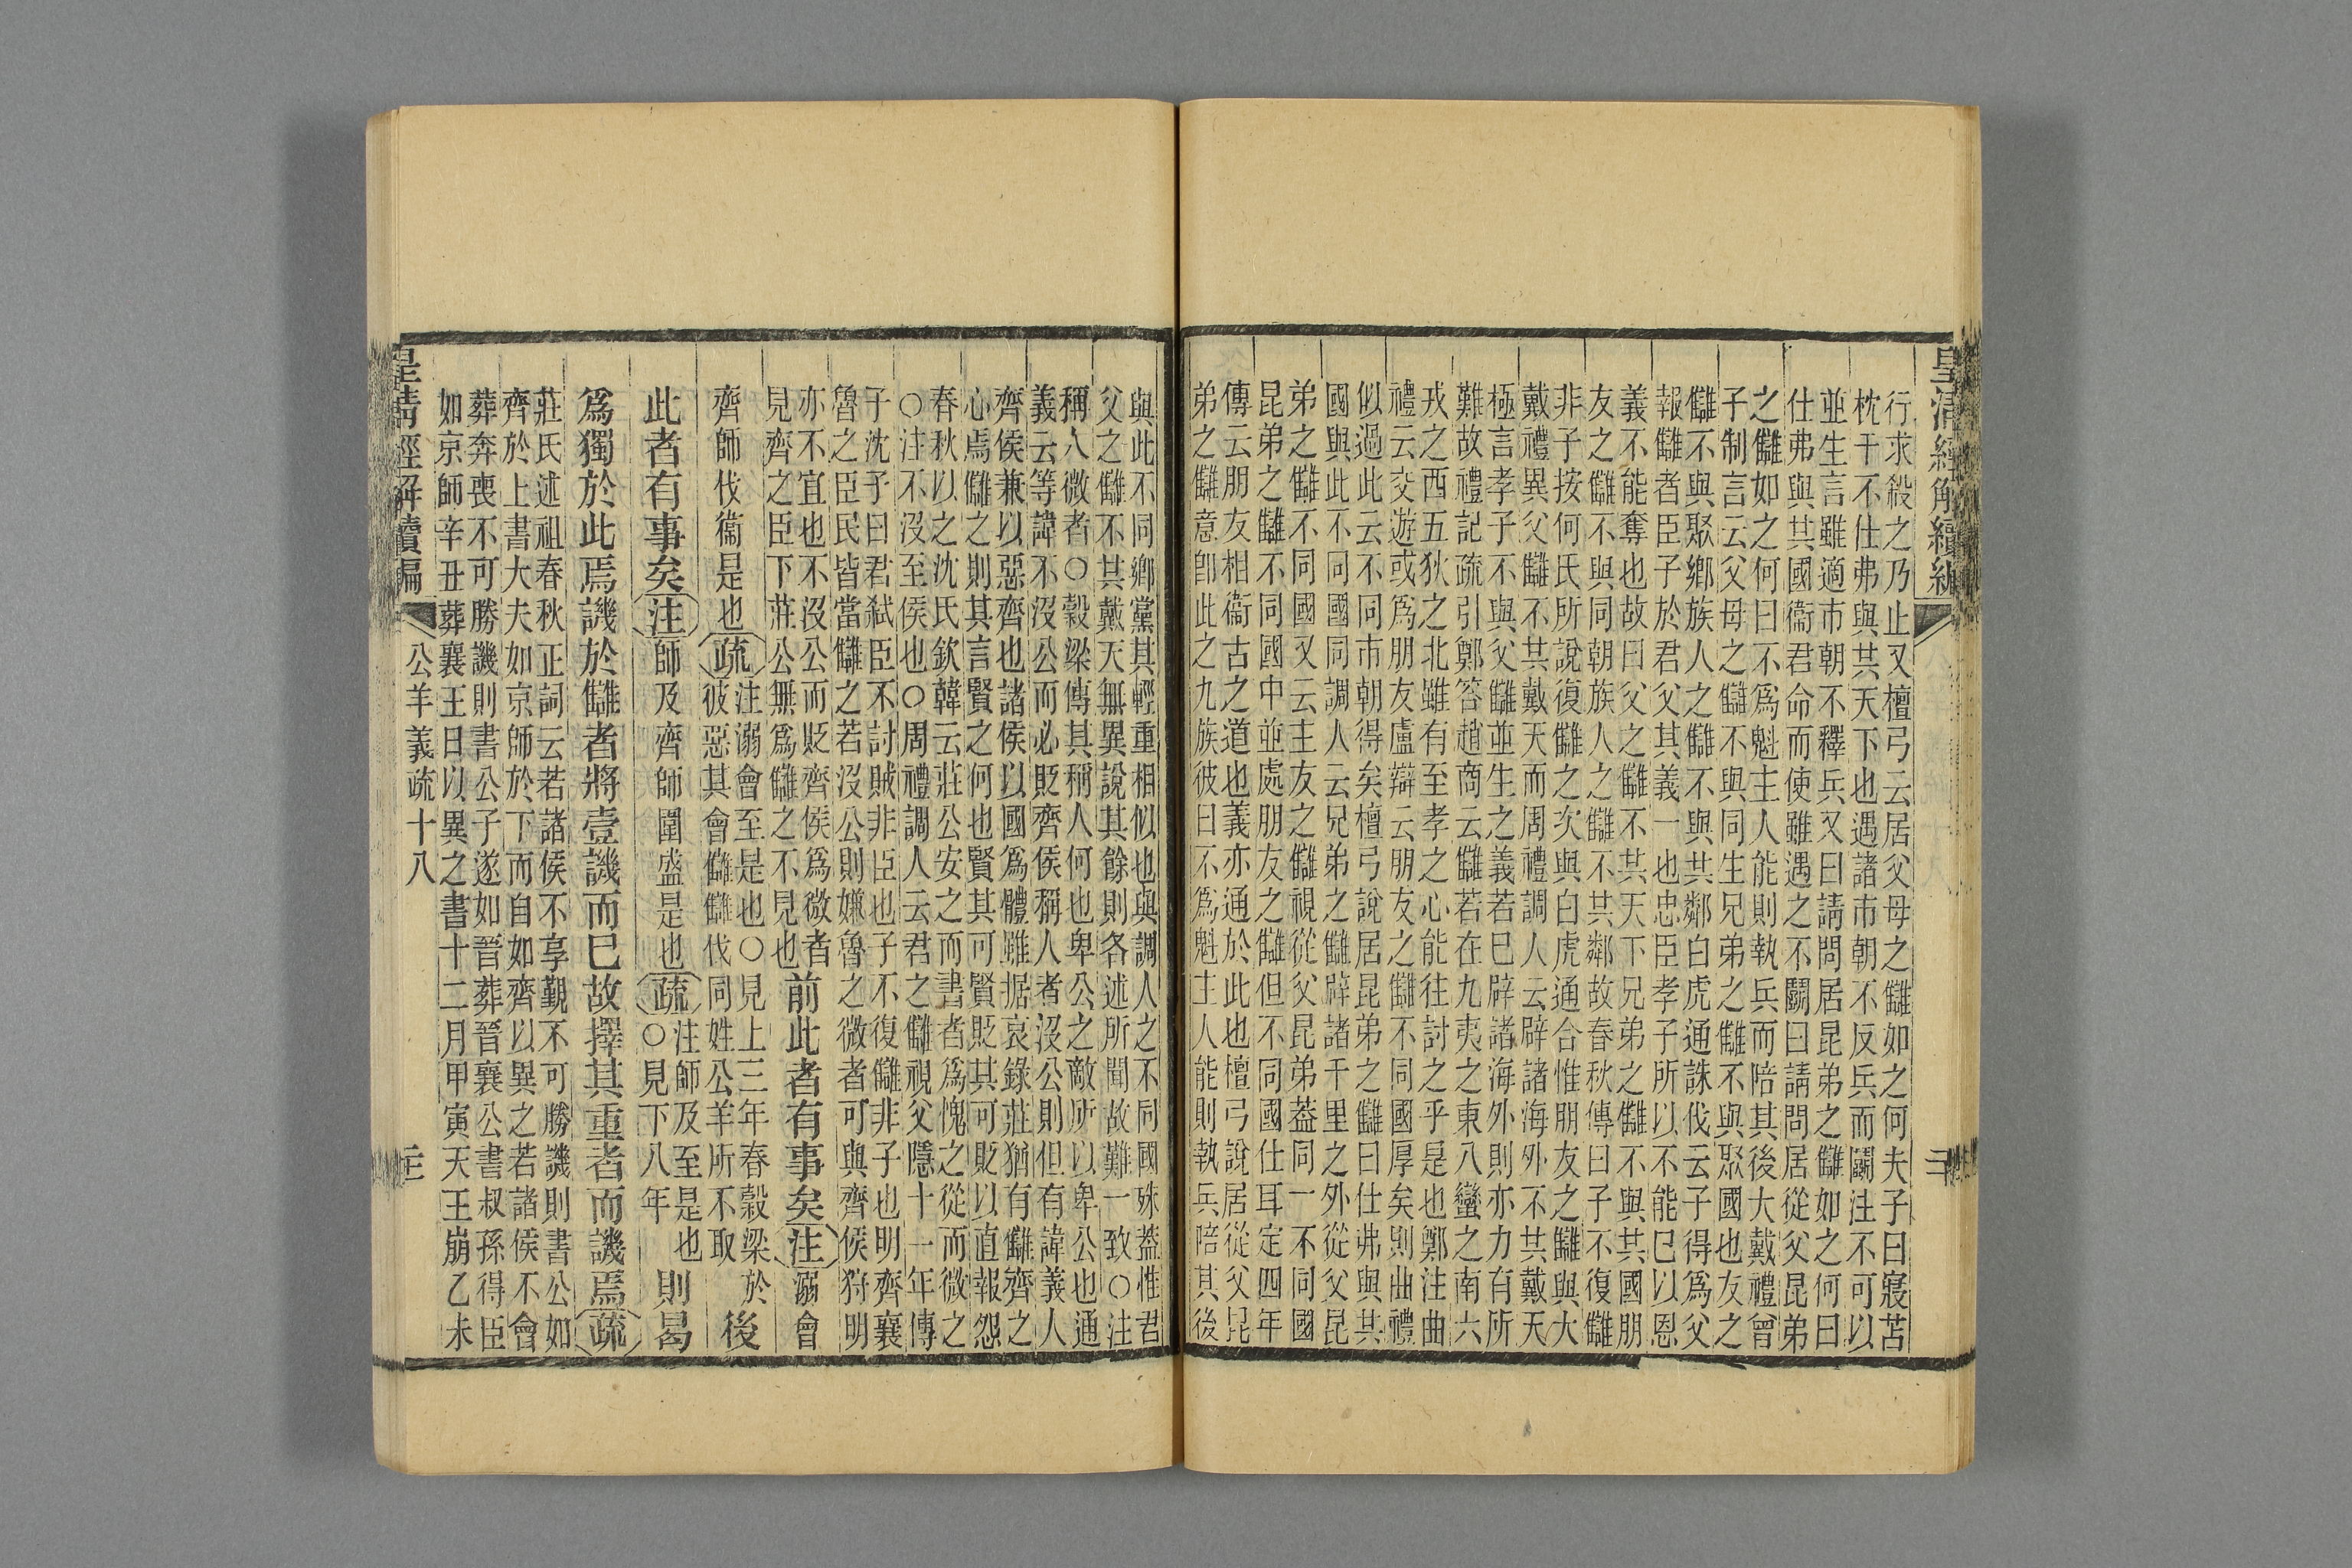 皇清經解續編
行求殺之乃止又檀弓云居父母之讎如之何夫子曰寢苫
枕干不仕弗與其天下也遇諸市朝不反兵而鬭注不可以
並生言雖適市朝不釋兵又曰請問居昆弟之讎如之何曰
仕弗與其國銜君命而使雖遇之不鬭曰請問居從父昆弟
之讎如之何曰不爲魁主人能則執兵而陪其後大戴禮曾
子制言云父母之讎不與同生兄弟之讎不與聚國也友之
讎不與聚鄉族人之讎不與共鄰白虎通誅伐云子得爲父
報讎者臣子於君父其義一也忠臣孝子所以不能已以恩
義不能奪也故曰父之讎不共天下兄弟之讎不與共國朋
友之讎不與同朝族人之讎不共鄰故春秋傳曰子不復讎
非子按何氏所說復讎之次與白虎通合惟朋友之讎與大
戴禮異父讎不共戴天而周禮調人云辟諸海外不共戴天
極言孝子不與父讎並生之義若已辟諸海外則亦力有所
難故禮記疏引鄭答趙商云讎若在九夷之東八蠻之南六
戎之西五狄之北雖有至孝之心能往討之乎是也鄭注曲
禮云交遊或爲朋友盧辯云朋友之讎不同國厚矣則曲禮
似過此云不同市朝得矣檀弓說居昆弟之讎曰仕弗與共
國與此不同國同調人云兄弟之讎辟諸千里之外從父昆
弟之讎不同國又云主友之讎視從父昆弟葢同一不同國
昆弟之讎不同國中並處朋友之讎但不同國仕耳定四年
傳云朋友相衞古之道也義亦通於此也檀弓說居從父昆
弟之讎意卽此之九族彼曰不爲魁主人能則執兵陪其後
與此不同鄉黨其輕重相似也與調人之不同國殊葢惟君
父之讎不共戴天無異說其餘則各述所聞故難一致○注
稱人微者○穀梁傳其稱人何也卑公之敵所以卑公也通
義云等諱不沒公而必貶齊侯稱人者沒公則但有諱義人
齊侯兼以惡齊也諸侯以國爲體雖据哀錄莊猶有讎齊之
心焉讎之則其言賢之何也賢其可賢貶其可貶以直報怨
春秋以之沈氏欽韓云莊公安之而書者爲愧之從而微之
○注不沒至侯也○周禮調人云君之讎視父隱十一年傳
子沈子曰君弒臣不討賊非臣也子不復讎非子也明齊襄
魯之臣民皆當讎之若沒公則嫌魯之微者可與齊侯狩明
亦不宜也不沒公而貶齊侯爲微者
見齊之臣下莊公無爲讎之不見也
前此者有事矣注溺會
齊師伐衞是也疏注溺會至是也○見上三年春穀梁於
彼惡其會讎讎伐同姓公羊所不取
後
此者有事矣注師及齊師圍盛是也疏注師及至是也
○見下八年
則曷
爲獨於此焉譏於讎者將壹譏而已故擇其重者而譏焉疏
莊氏述祖春秋正詞云若諸侯不享覲不可勝譏則書公如
齊於上書大夫如京師於下而自如齊以異之若諸侯不會
葬奔喪不可勝譏則書公子遂如晉葬晉襄公書叔孫得臣
如京師辛丑葬襄王日以異之書十二月甲寅天王崩乙未
皇清經解續編
公羊義疏十八